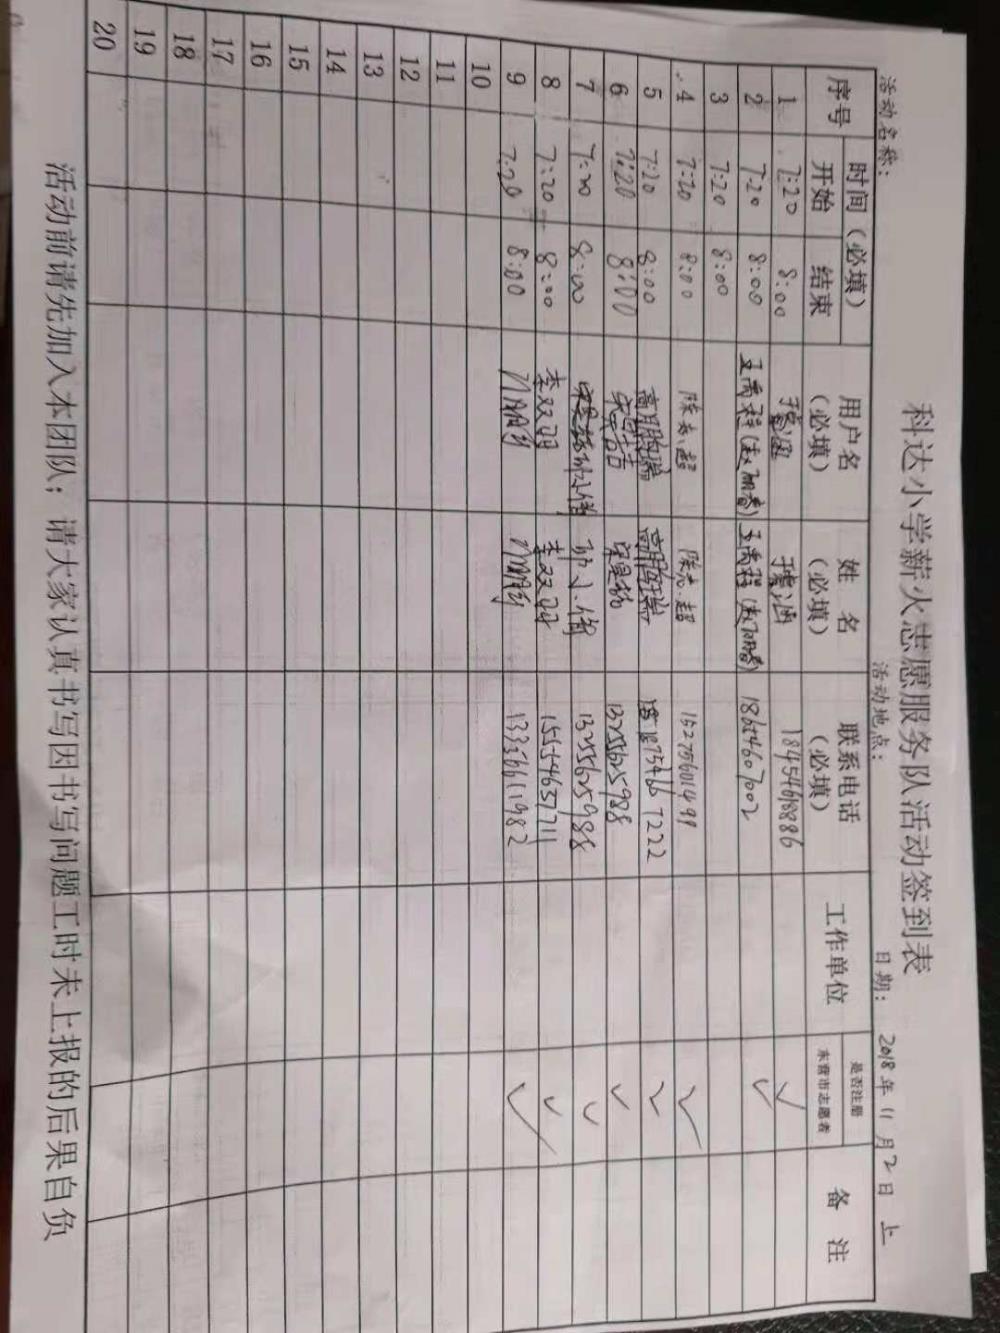 科达小学薪火志愿服务队活动签到表
活动名称: 活动地点: 日期: 2018年11月2日 上
序号 时间(必填) 用户名(必填) 姓名(必填) 联系电话(必填) 工作单位 是否注册东营市志愿者 备注
开始 结束
1 7:20 8:00 18454618886 ✓
2 7:20 8:00 王禹程(赵丽春) 王禹程(赵丽春) 18654607002 ✓
3 7:20 8:00
4 7:20 8:00 陈志超 陈志超 ✓
5 7:20 8:00 7222 ✓
6 7:20 8:00 13255625988 ✓
7 7:20 8:00 孙小倩 13255625988 ✓
8 7:20 8:00 李双羽 李双羽 15554637711 ✓
9 7:20 8:00 13356611982 ✓
10
11
12
13
14
15
16
17
18
19
20
活动前请先加入本团队;请大家认真书写因书写问题工时未上报的后果自负